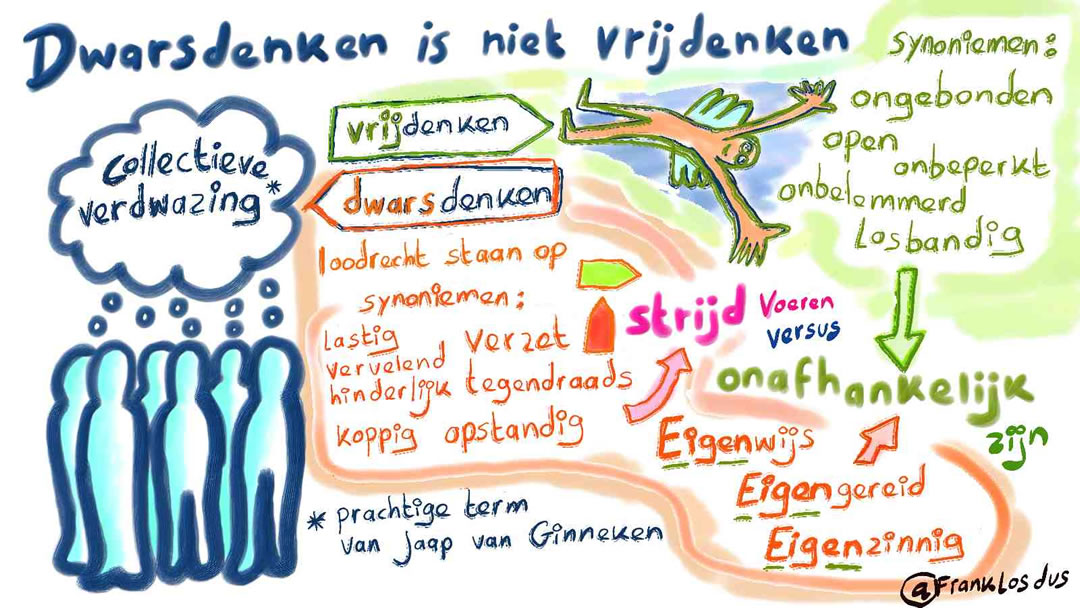 Dwarsdenken is niet vrijdenken
collectieve
verdwazing*
vrijdenken
dwarsdenken
loodrecht staan op
synoniemen:
lastig
vervelend
hinderlijk
koppig
verzet
tegendraads
opstandig
* prachtige term
van Jaap van Ginneken
synoniemen:
ongebonden
open
onbeperkt
onbelemmerd
losbandig
strijd voeren
versus
onafhankelijk
zijn
Eigenwijs
Eigengereid
Eigenzinnig
@Franklosdus